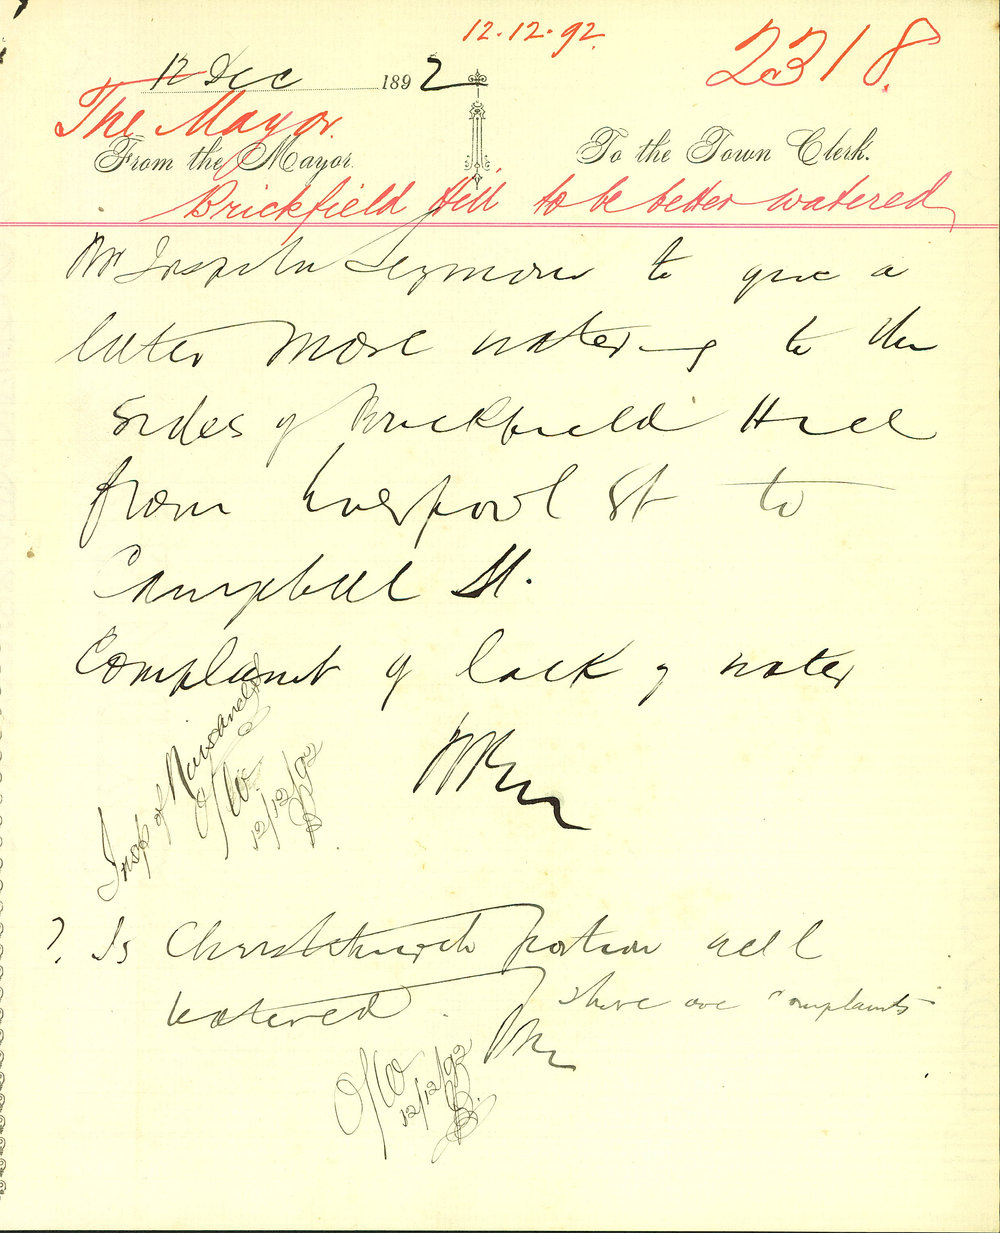 12.12.92
2318.
12 Dec 1892
The Mayor.
From the Mayor.
To the Town Clerk.
Brickfield Hill to be better watered
Mr Inspector Seymour to give a
little more watering to the
sides of Brickfield Hill
from Liverpool St to
Campbell St.
Complaint of lack of water
Insp of Nuisances
12/12/92
? Is Christchurch portion well
watered.
There are complaints
12/12/92